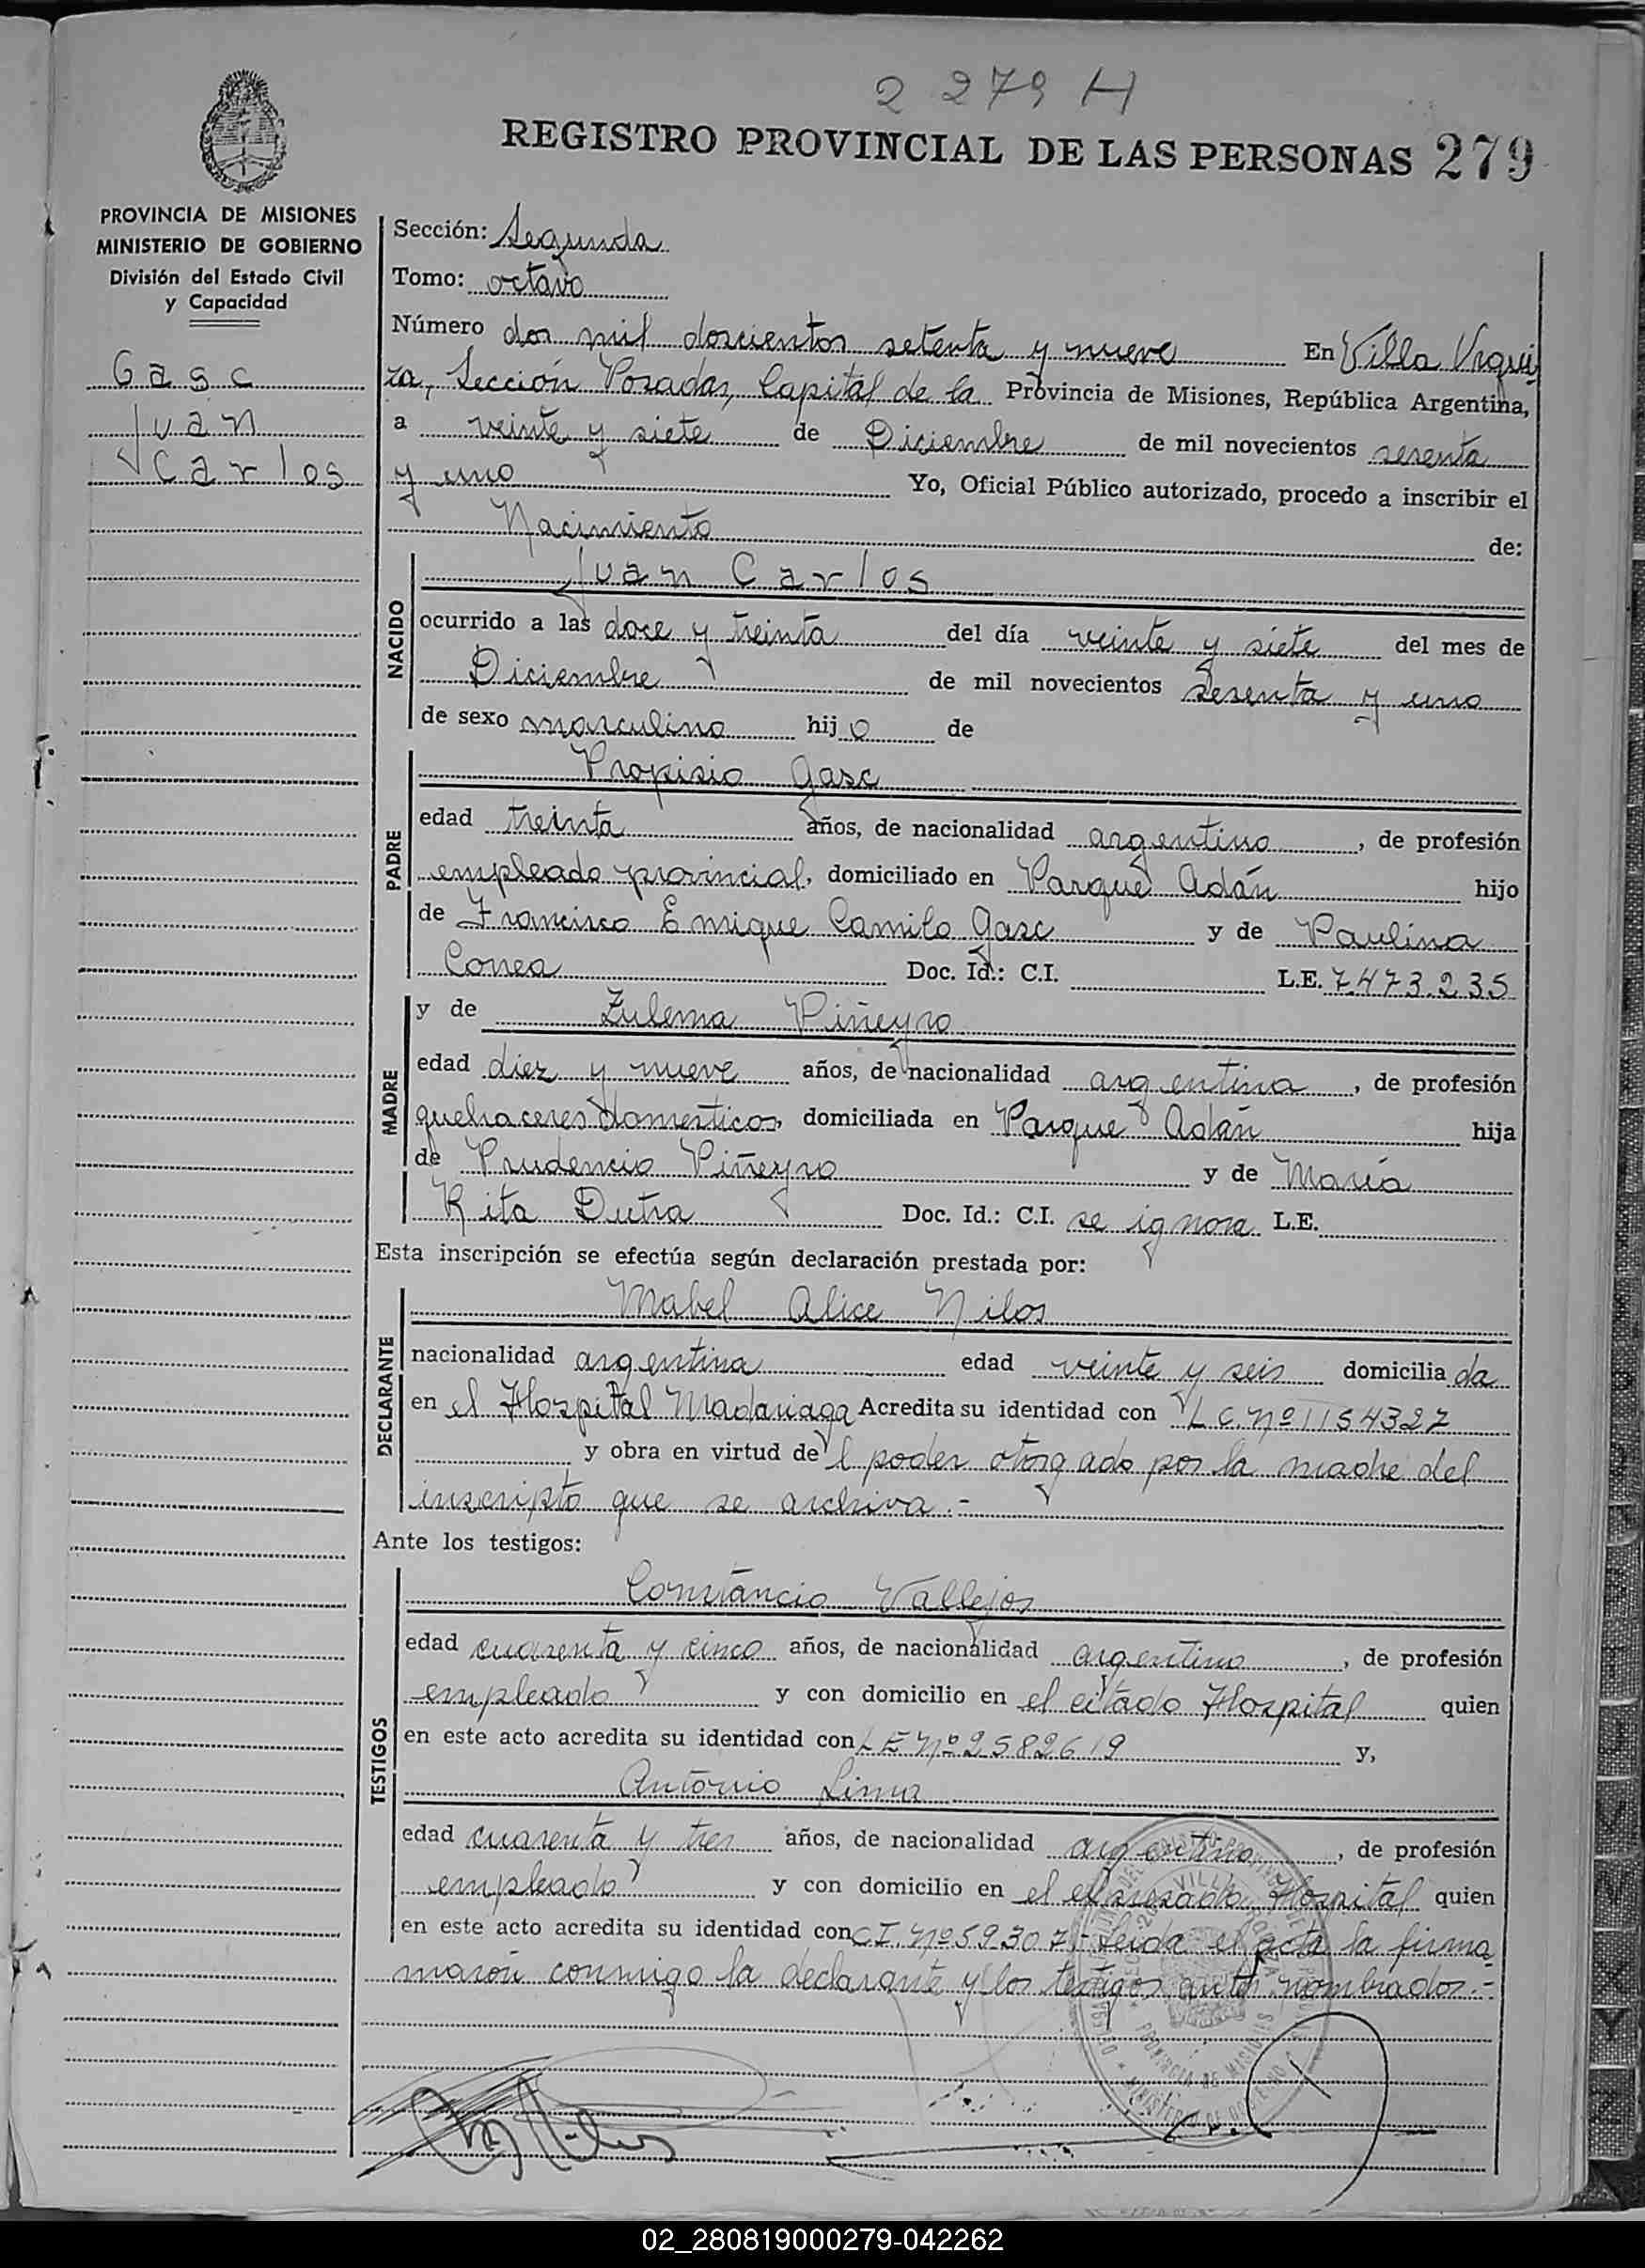 2 279 H
REGISTRO PROVINCIAL DE LAS PERSONAS 279
PROVINCIA DE MISIONES
MINISTERIO DE GOBIERNO
División del Estado Civil
y Capacidad
Gasc
Juan
Carlos
Sección: Segunda
Tomo: octavo
Número dos mil doscientos setenta y nueve En Villa Urqui
za, Sección Posadas, Capital de la Provincia de Misiones, República Argentina,
a veinte y siete de Diciembre de mil novecientos sesenta
y uno Yo, Oficial Público autorizado, procedo a inscribir el
Nacimiento de:
NACIDO
Juan Carlos
ocurrido a las doce y treinta del día veinte y siete del mes de
Diciembre de mil novecientos sesenta y uno
de sexo masculino hijo de
PADRE
Propisio Gasc
edad treinta años, de nacionalidad argentino, de profesión
empleado provincial, domiciliado en Parque Adán hijo
de Francisco Enrique Camilo Gasc y de Paulina
Correa Doc. Id.: C.I. L.E. 7.473.235
MADRE
y de Zulema Piñeyro
edad diez y nueve años, de nacionalidad argentina, de profesión
quehaceres domesticos, domiciliada en Parque Adán hija
de Prudencio Piñeyro y de María
Rita Dutra Doc. Id.: C.I. se ignora L.E.
Esta inscripción se efectúa según declaración prestada por:
DECLARANTE
Mabel Alice Nilos
nacionalidad argentina edad veinte y seis domiciliada
en el Hospital Madariaga Acredita su identidad con L C. Nº 1154327
y obra en virtud del poder otorgado por la madre del
inscripto que se archiva.-
Ante los testigos:
TESTIGOS
Constancio Vallejos
edad cuarenta y cinco años, de nacionalidad argentino, de profesión
empleado y con domicilio en el citado Hospital quien
en este acto acredita su identidad con L E Nº 2582619 y,
Antonio Lima
edad cuarenta y tres años, de nacionalidad argentino, de profesión
empleado y con domicilio en el expresado Hospital quien
en este acto acredita su identidad con C I. Nº 59307.- Leida el acta la firma
maron conmigo la declarante y los testigos antes nombrados.-
02_280819000279-042262